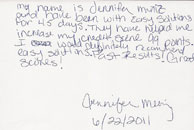 my name is Jennifer Muniz
and have been with easy solutions
for 45 days. They have helped me
increase my credit score 99 points.
I would definitely recommend
easy solutions. Fast Results! Great
scores!
Jennifer Muniz
6/22/2011